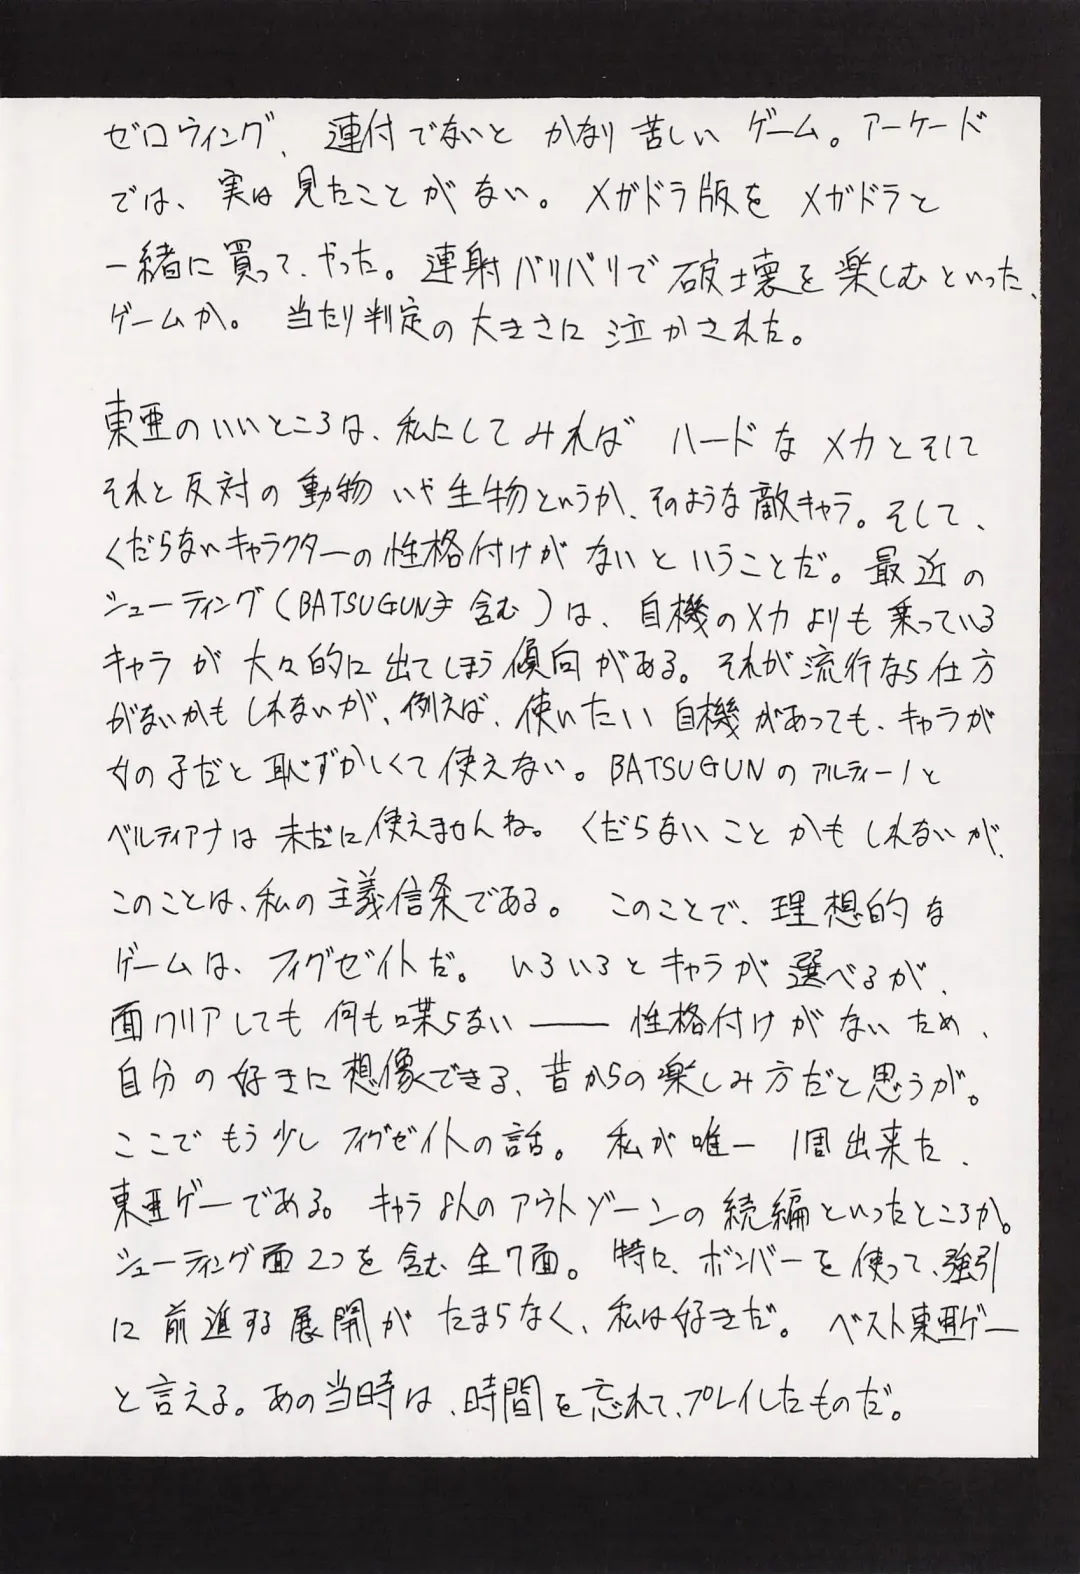 ゼロウィング、連付でないと かなり苦しい ゲーム。アーケード
では、実は見たことがない。メガドラ版を メガドラと
一緒に買って、やった。連射バリバリで破壊を楽しむといった、
ゲームか。 当たり判定の大きさに泣かされた。
東亜のいいところは、私にしてみれば ハードな メカとそして
それと反対の動物 いや生物というか、そのような敵キャラ。そして、
くだらないキャラクターの性格付けが ないと いうことだ。最近の
シューティング(BATSUGUNを含む)は、自機のメカよりも乗っている
キャラが 大々的に出てしまう傾向がある。それが流行なら仕方
がないかも しれないが、例えば、使いたい 自機があっても、キャラが
女の子だと 恥ずかしくて使えない。BATSUGUNの アルティーノと
ベルティアナは 未だに使えませんね。くだらないこと かも しれないが、
このことは、私の主義信条である。 このことで、理想的な
ゲームは、フィグゼイトだ。いろいろとキャラが選べるが、
面クリアしても 何も喋らない ―― 性格付けがないため、
自分の好きに想像できる、昔からの楽しみ方だと思うが。
ここで もう少し フィグゼイトの話。 私が唯一 1周出来た、
東亜ゲーである。キャラ8人のアウトゾーンの続編といったところか。
シューティング面2つを含む全7面。特に、ボンバーを使って、強引
に前進する展開が たまらなく、私は好きだ。ベスト東亜ゲー
と言える。あの当時は、時間を忘れて、プレイしたものだ。